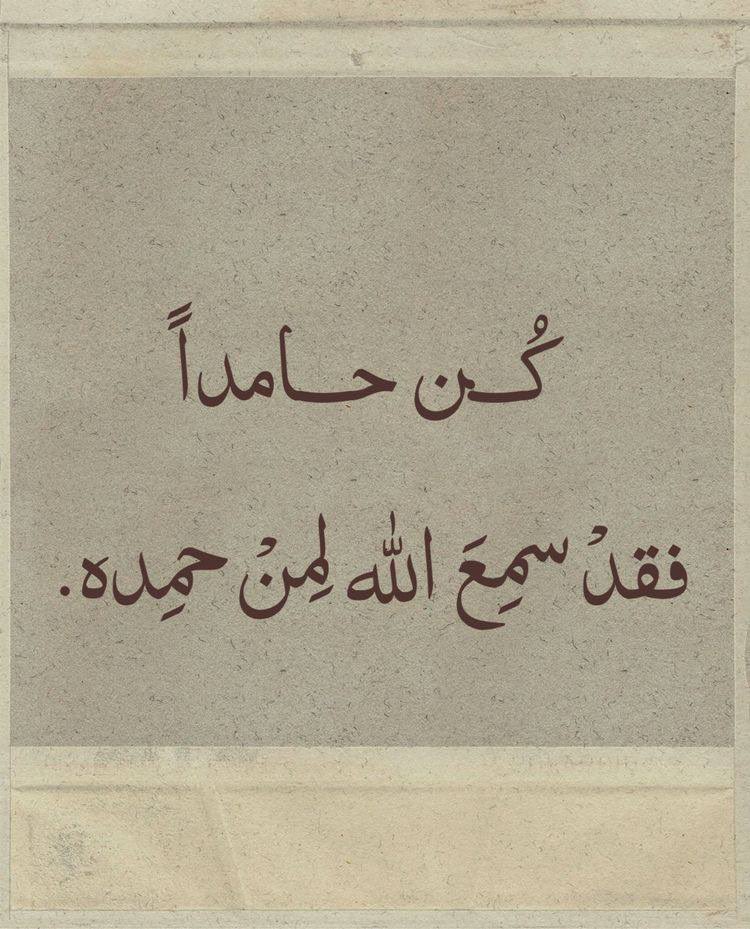 كُـن حـامداً
فقدْ سمِعَ اللّٰه لِمِنْ حمِده.